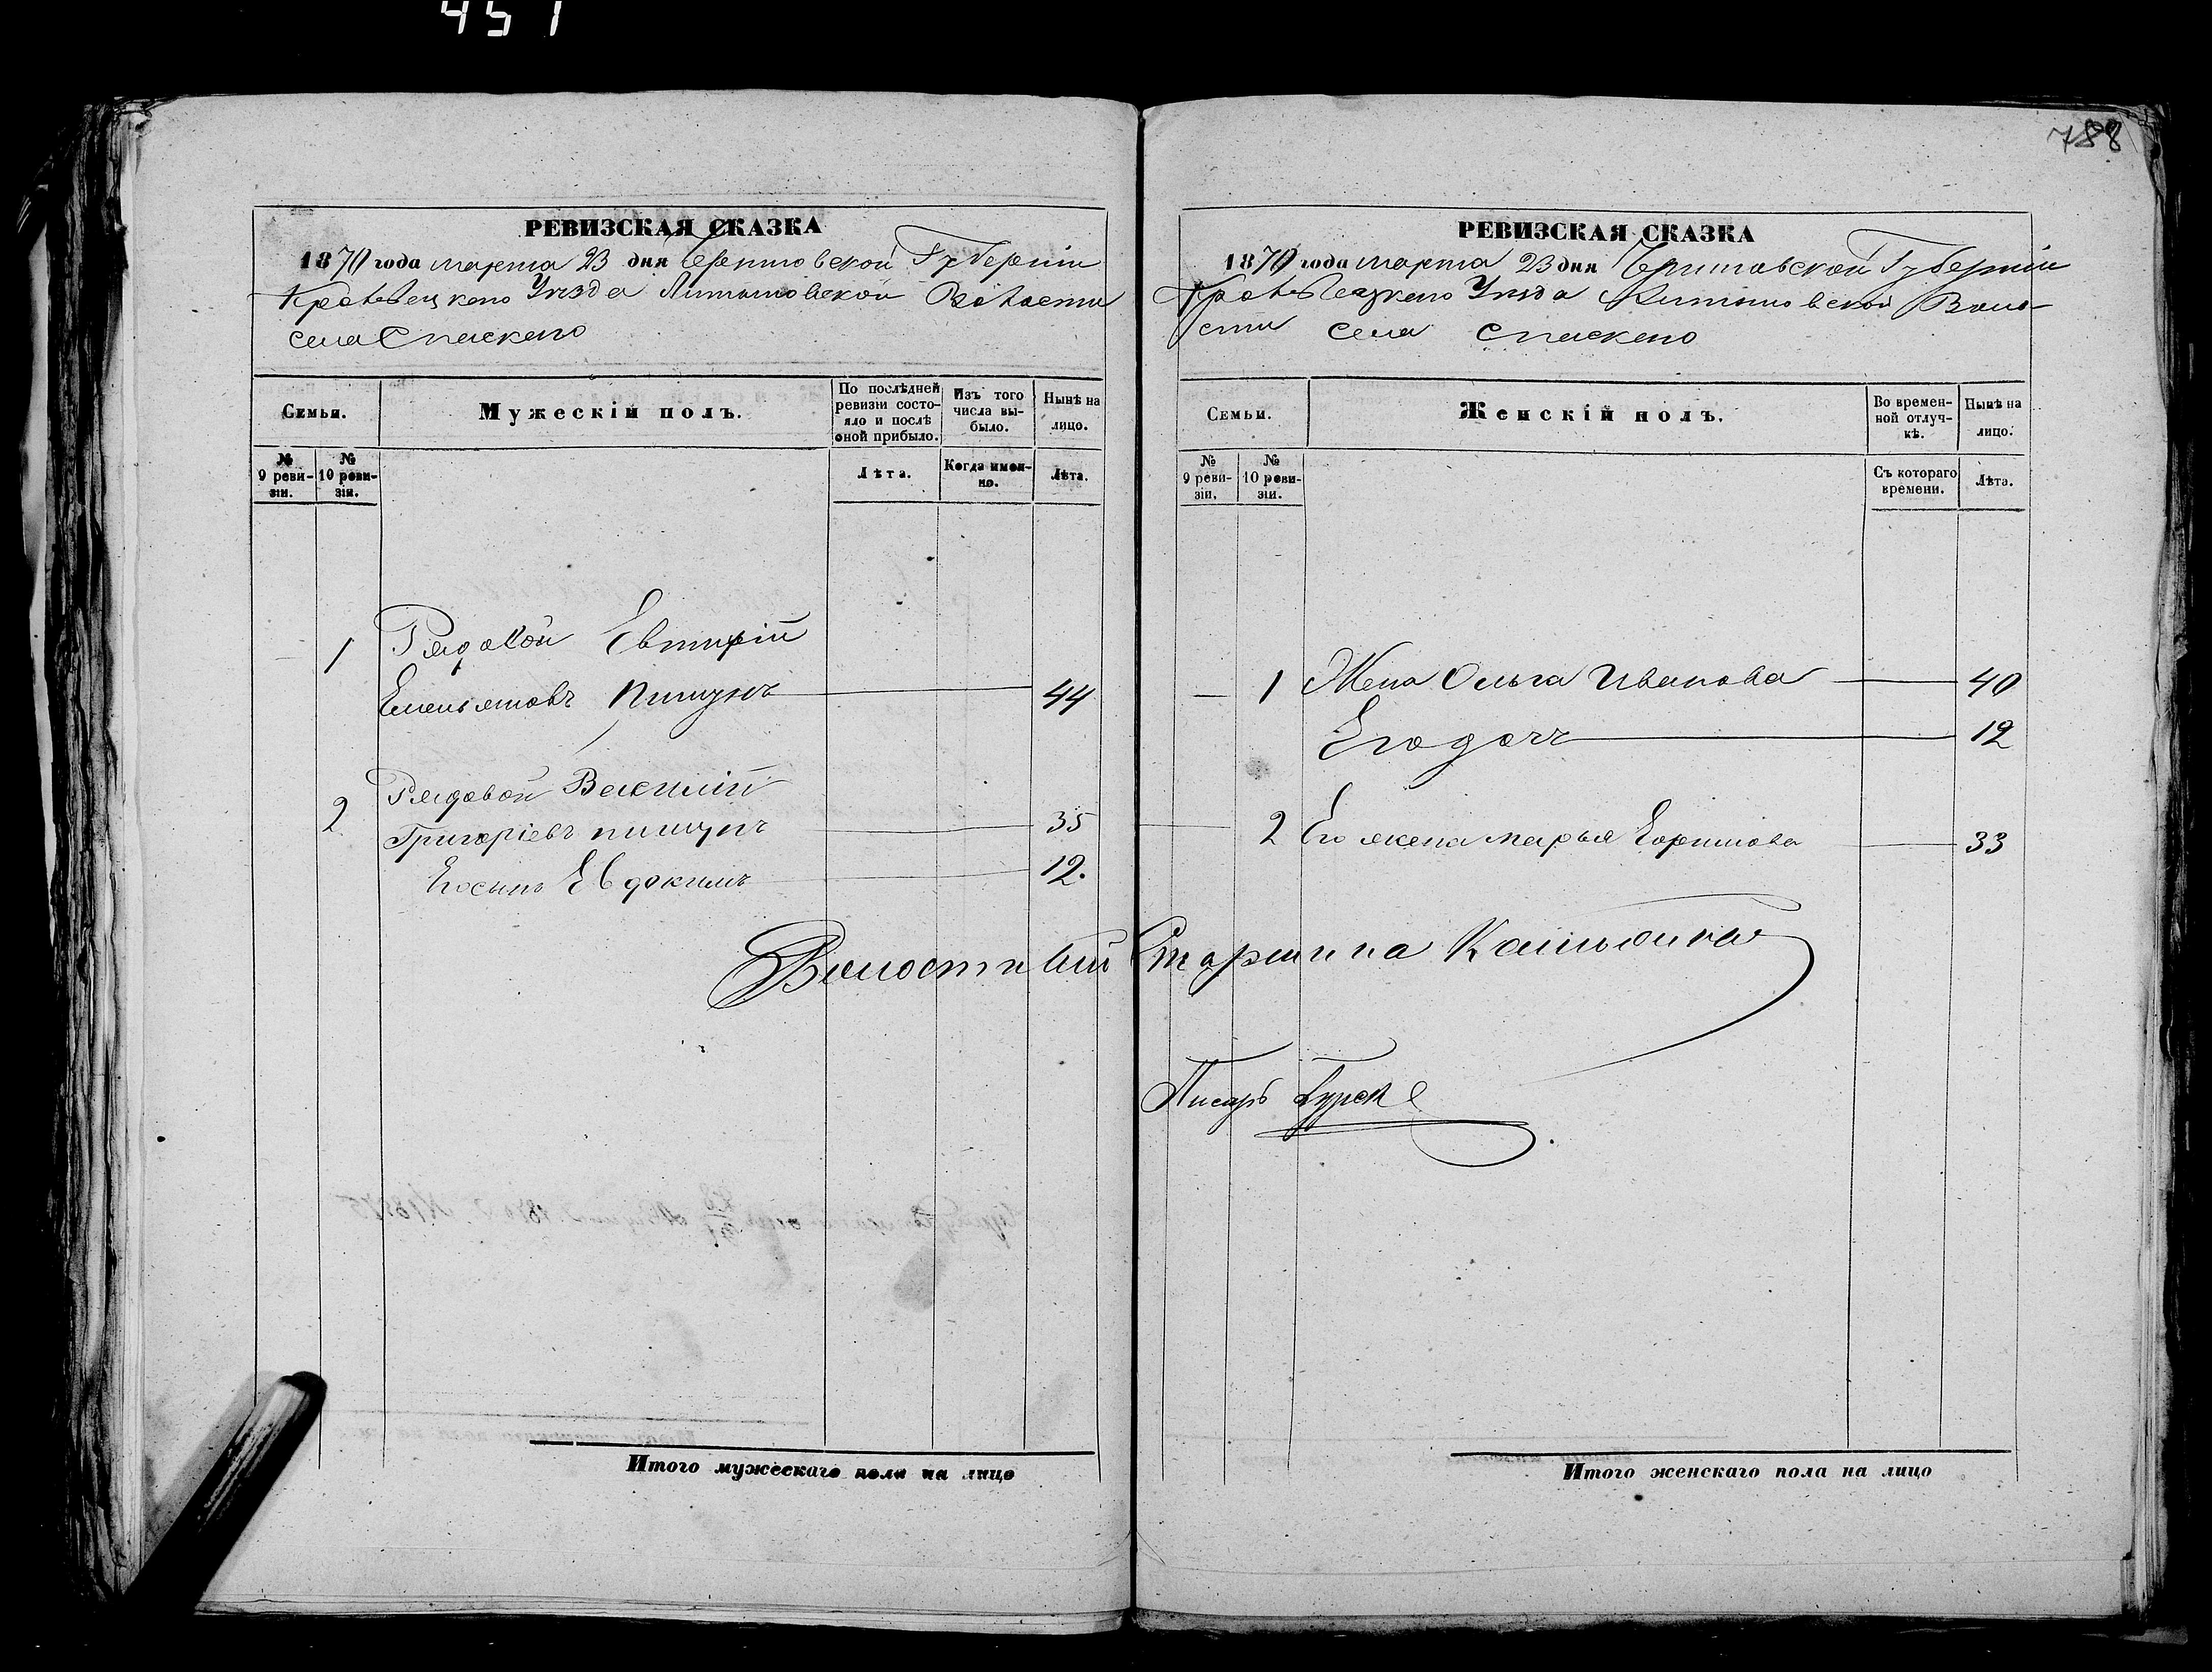 451
788
РЕВИЗСКАЯ СКАЗКА
1870 года марта 23 дня Черниговской Губерніи
Кролевецкаго Уѣзда Волости
села Спаскаго
Семьи.
Мужескій полъ.
По послѣдней ревизіи состояло и послѣ оной прибыло.
Изъ того числа выбыло.
Нынѣ на лицо.
№ 9 ревизіи.
№ 10 ревизіи.
Лѣта.
Когда именно.
Лѣта.
1 Рядовой Евтихій
Емельяновъ Пищунъ 44
2 Рядовой Василій
Григоріевъ пищунъ 35
Его сынъ Евдокимъ 12.
Итого мужескаго пола на лицо
РЕВИЗСКАЯ СКАЗКА
1870 года марта 23 дня Черниговской Губерніи
Кролевецкаго Уѣзда Воло-
сти села Спаскаго
Семьи.
Женскій полъ.
Во временной отлучкѣ.
Нынѣ на лицо.
№ 9 ревизіи.
№ 10 ревизіи.
Съ котораго времени.
Лѣта.
1 Жена Ольга Иванова 40
Его дочь 12
2 Его жена марья 33
Волостный Старшина
Писарь
Итого женскаго пола на лицо